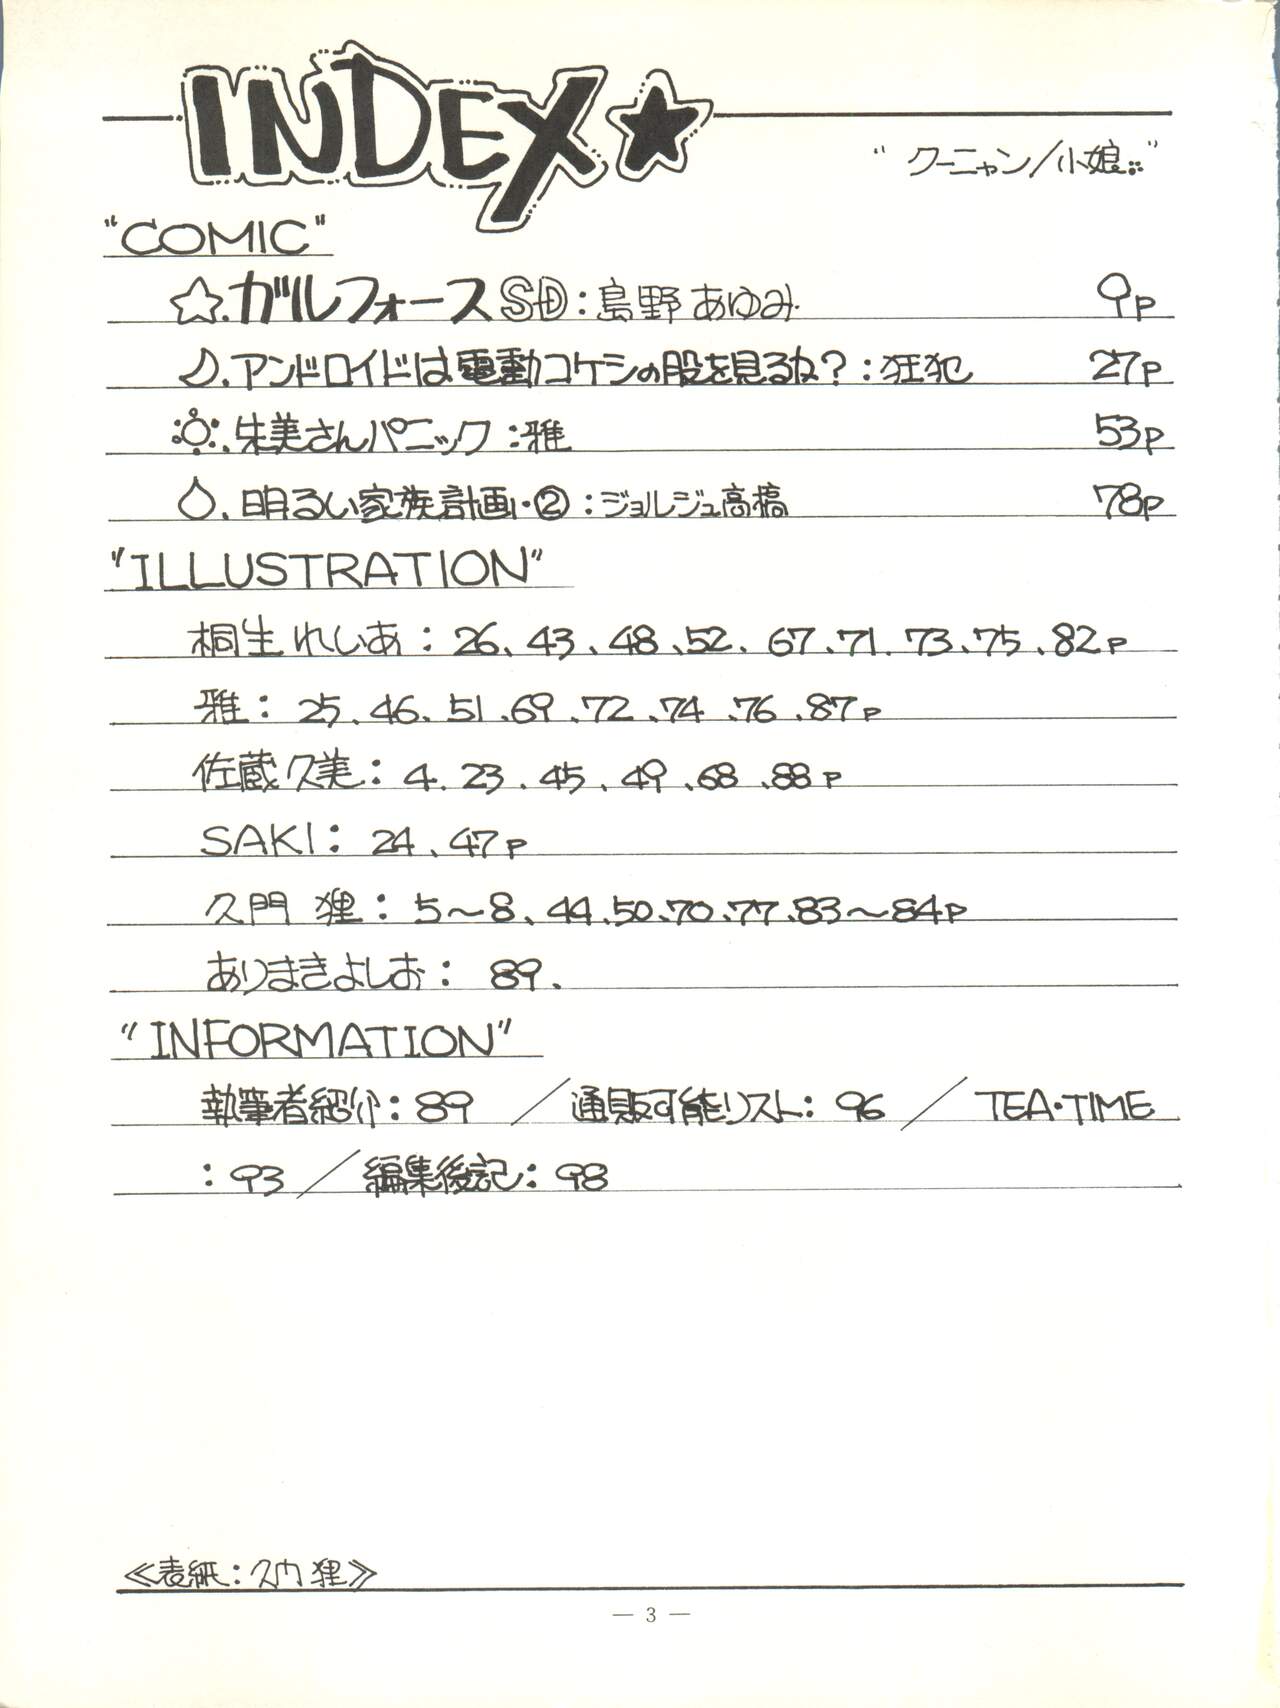 INDEX★
"クーニャン/小娘"
"COMIC"
☆.ガルフォースSD:島野あゆみ 9p
.アンドロイドは電動コケシの股を見るね?:狂犯 27p
.朱美さんパニック:雅 53p
.明るい家族計画・②:ジョルジュ高槁 78p
"ILLUSTRATION"
桐生れいあ:26、43、48、52、67、71、73、75、82p
雅:25、46、51、69、72、74、76、87p
佐蔵久美:4、23、45、49、68、88p
SAKI:24、47p
久門 狸:5〜8、44、50、70、77、83〜84p
ありまきよしお:89.
"INFORMATION"
執筆者紹介:89 /通販可能リスト:96 / TEA・TIME
:93 /編集後記:98
≪表紙:久門 狸≫
— 3 —